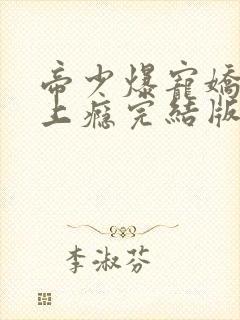 帝少爆寵嬌
上癮完結版
李淑芬